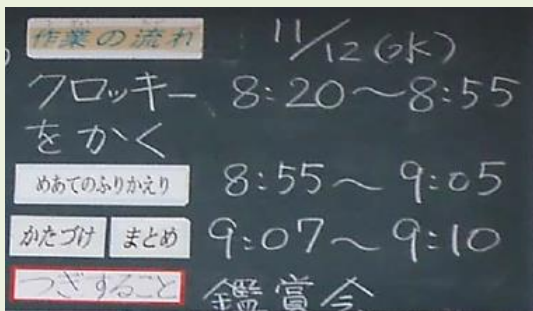 作業の流れ 11/12(水)
クロッキー 8:20～8:55
をかく
めあてのふりかえり 8:55～9:05
かたづけ まとめ 9:07～9:10
つぎすること 鑑賞会